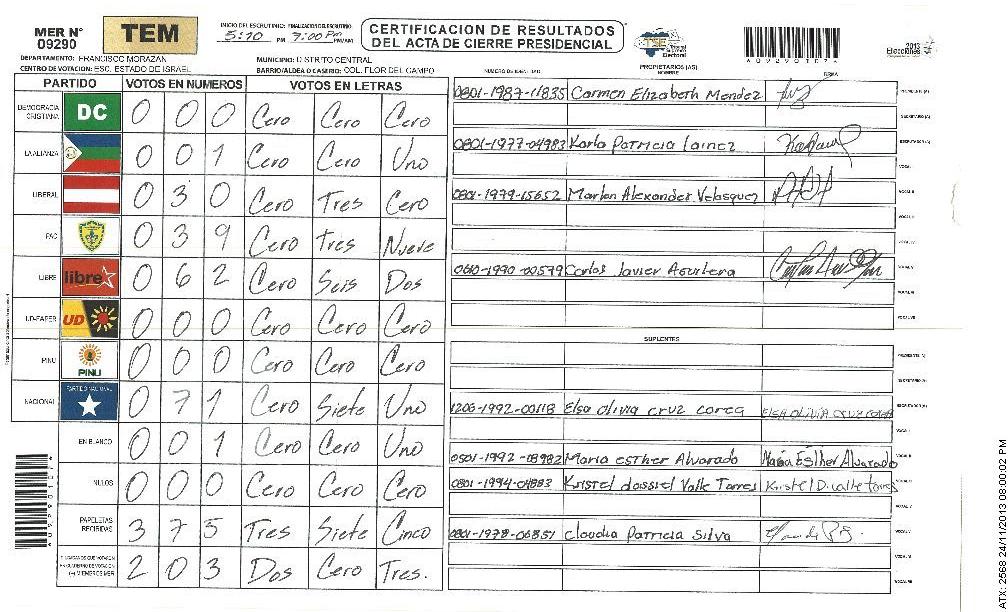 MER N° 09290
TEM
INICIO DEL ESCRUTINIO: FINALIZACION DEL ESCRUTINIO
5:10 PM 7:00 Pm PM/AM
CERTIFICACION DE RESULTADOS
DEL ACTA DE CIERRE PRESIDENCIAL
TSE
2013
Elecciones
DEPARTAMENTO: FRANCISCO MORAZAN
MUNICIPIO: DISTRITO CENTRAL
CENTRO DE VOTACION: ESC. ESTADO DE ISRAEL
BARRIO/ALDEA O CASERIO: COL. FLOR DEL CAMPO
PROPIETARIOS (AS)
NUMERO DE IDENTIDAD NOMBRE FIRMA
PARTIDO VOTOS EN NUMEROS VOTOS EN LETRAS
DEMOCRACIA CRISTIANA DC 0 0 0 Cero Cero Cero
LA ALIANZA 0 0 1 Cero Cero Uno
LIBERAL 0 3 0 Cero Tres Cero
PAC 0 3 9 Cero Tres Nueve
LIBRE libre 0 6 2 Cero Seis Dos
UD-FAPER UD 0 0 0 Cero Cero Cero
PINU PINU 0 0 0 Cero Cero Cero
NACIONAL PARTIDO NACIONAL 0 7 1 Cero Siete Uno
EN BLANCO 0 0 1 Cero Cero Uno
NULOS 0 0 0 Cero Cero Cero
PAPELETAS RECIBIDAS 3 7 5 Tres Siete Cinco
2 0 3 Dos Cero Tres.
0801-1987-11835 Carmen Elizabeth Mendez
0801-1977-04983 Karla Patricia Lainez
0801-1979-15652 Marlon Alexander Velasquez
0610-1990-00579 Carlos Javier Aguilera
SUPLENTES
1206-1992-00118 Elsa Olivia Cruz Corea
0501-1992-08982 Maria Esther Alvarado Maria Esther Alvarado
0801-1994-04883 Kristel dassiel Valle Torres
0801-1978-06851 Claudia Patricia Silva
ATX: 2568 24/11/2013 08:00:02 PM